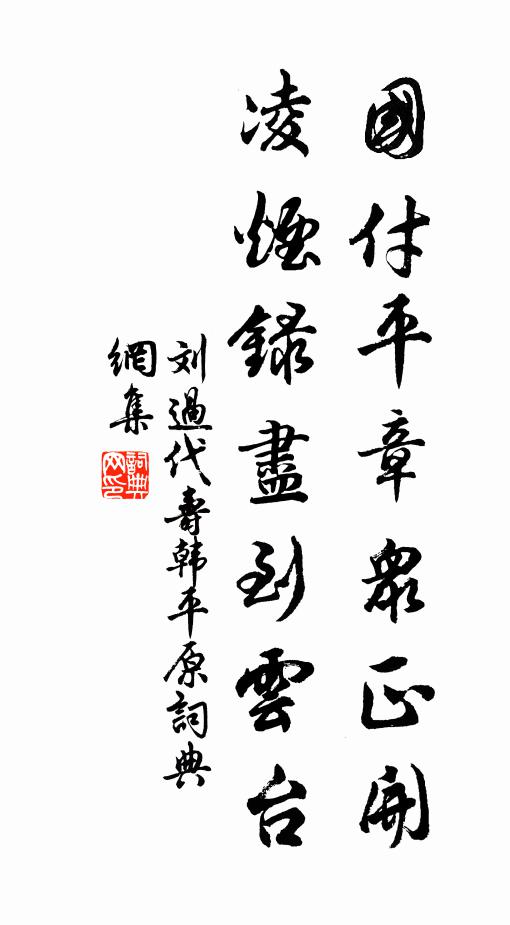 國付平章眾正開
凌煙錄盡到雲台
刘過代壽韩平原詞典
網集
詞典網印